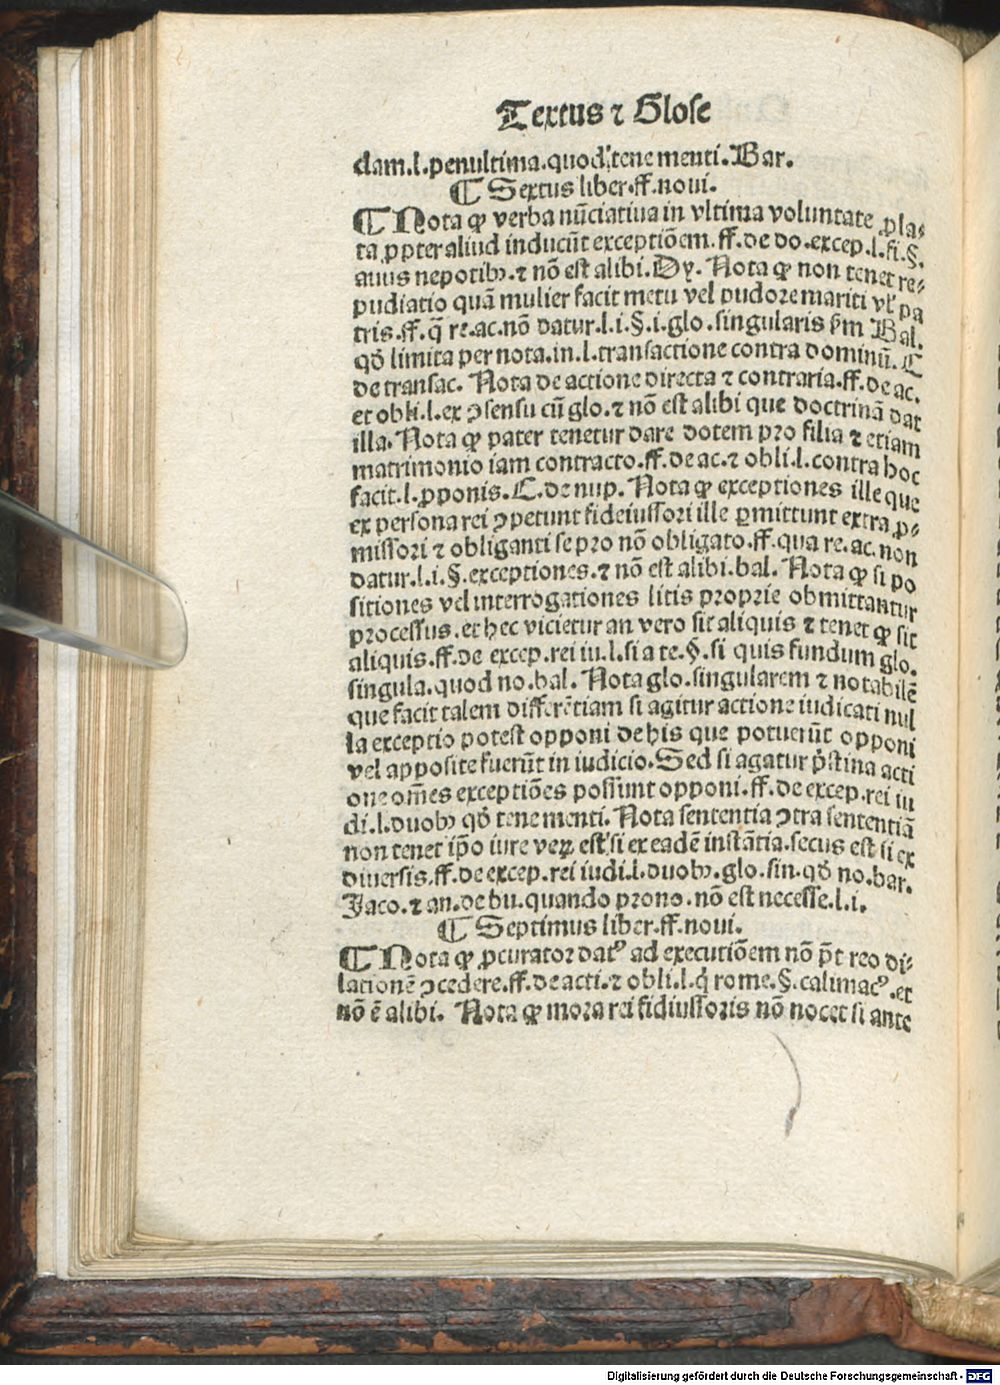 Textus ⁊ Glose
dam.l.penultima.quod tene menti.Bar.
¶ Sextus liber.ff.noui.
¶ Nota ꝙ verba nūciatiua in vltima voluntate ꝓla⸗
ta ꝓpter aliud inducūt exceptiōem.ff.de do.excep.l.fi.§.
auus nepotibꝰ.⁊ nō est alibi.Dy. Nota ꝙ non tenet re⸗
pudiatio quā mulier facit metu vel pudore mariti vl' pa
tris.ff.q̄ re.ac.nō datur.l.i.§.i.glo.singularis ẜm Bal.
qđ limita per nota.in.l.transactione contra dominū.C
de transac. Nota de actione directa ⁊ contraria.ff.de ac.
et obli.l.ex ꝯsensu cū glo.⁊ nō est alibi que doctrinā dat
illa. Nota ꝙ pater tenetur dare dotem pro filia ⁊ etiam
matrimonio iam contracto.ff.de ac.⁊ obli.l.contra hoc
facit.l.ꝓponis.C.de nup. Nota ꝙ exceptiones ille que
ex persona rei ꝯpetunt fideiussori ille ꝑmittunt extra ꝓ⸗
missori ⁊ obliganti se pro nō obligato.ff.qua re.ac.non
datur.l.i.§.exceptiones.⁊ nō est alibi.bal. Nota ꝙ si po
sitiones vel interrogationes litis proprie obmittantur
processus.et hec vicietur an vero sit aliquis ⁊ tenet ꝙ sit
aliquis.ff.de excep.rei iu.l.si a te.§.si quis fundum glo.
singula.quod no.bal. Nota glo.singularem ⁊ notabilē
que facit talem differētiam si agitur actione iudicati nul
la exceptio potest opponi de his que potuerūt opponi
vel apposite fuerūt in iudicio.Sed si agatur pͥstina acti
one om̄es exceptiōes possunt opponi.ff.de excep.rei iu
di.l.duobꝰ qđ tene menti. Nota sententia ꝯtra sententiā
non tenet ip̄o iure veꝝ est si ex eadē instātia.secus est si ex
diuersis.ff.de excep.rei iudi.l.duobꝰ.glo.sin.qđ no.bar.
Jaco.⁊ an.de bu.quando prono.nō est necesse.l.i.
¶ Septimus liber.ff.noui.
¶ Nota ꝙ ꝓcurator datꝰ ad executiōem nō pt̄ reo di⸗
lationē ꝯcedere.ff.de acti.⁊ obli.l.qͥ rome.§.calimacꝰ.et
nō ē alibi. Nota ꝙ mora rei fidiussoris nō nocet si ante
Digitalisierung gefördert durch die Deutsche Forschungsgemeinschaft - DFG